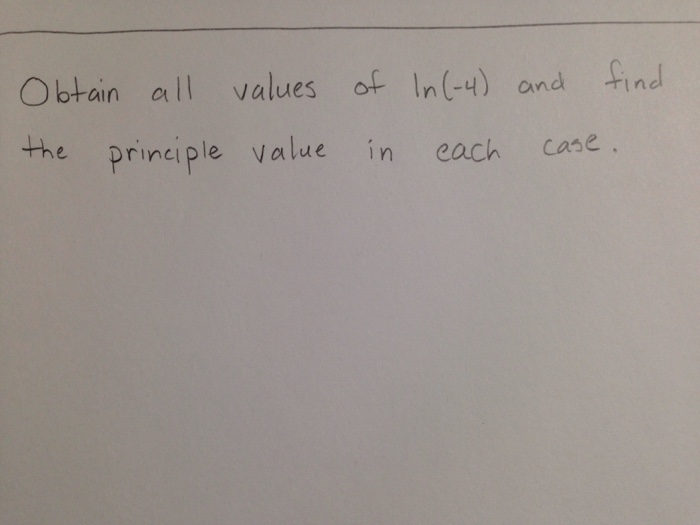 Obtain all values of ln(-4) and find
the principle value in each case.